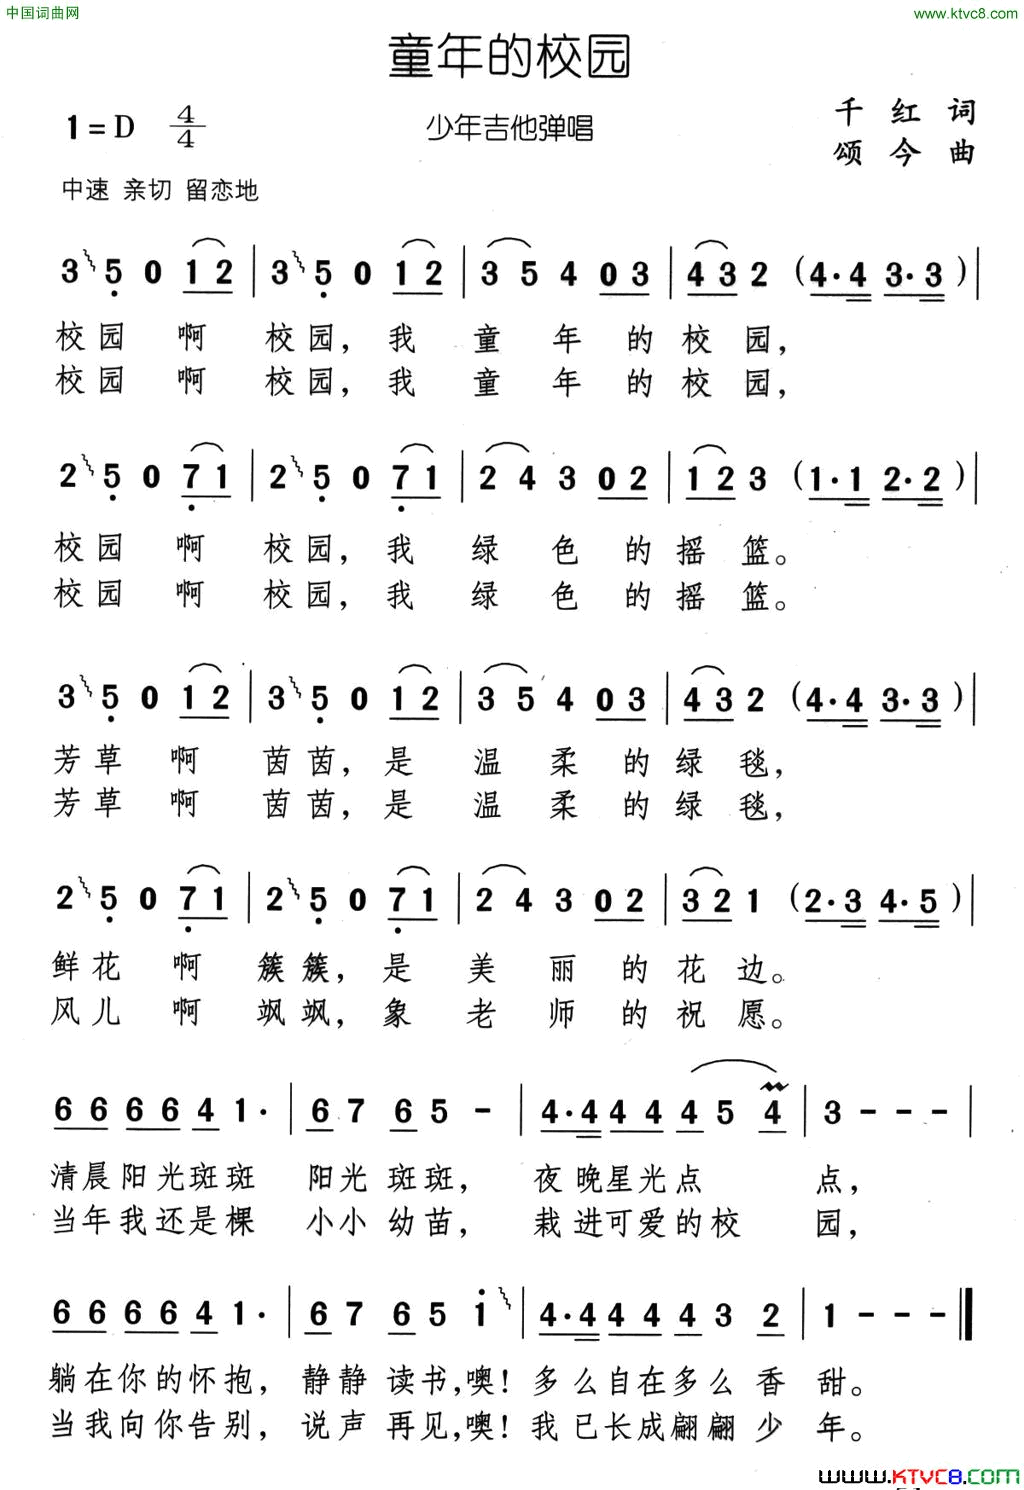 中国词曲网 www.ktvc8.com
童年的校园
1=D 4/4 少年吉他弹唱 千红词
颂今曲
中速 亲切 留恋地
3 5 0 1 2 | 3 5 0 1 2 | 3 5 4 0 3 | 4 3 2 (4·4 3·3) |
校园 啊 校园，我 童 年 的校 园，
校园 啊 校园，我 童 年 的校 园，
2 5 0 7 1 | 2 5 0 7 1 | 2 4 3 0 2 | 1 2 3 (1·1 2·2) |
校园 啊 校园，我 绿 色 的摇 篮。
校园 啊 校园，我 绿 色 的摇 篮。
3 5 0 1 2 | 3 5 0 1 2 | 3 5 4 0 3 | 4 3 2 (4·4 3·3) |
芳草 啊 茵茵，是 温 柔 的绿 毯，
芳草 啊 茵茵，是 温 柔 的绿 毯，
2 5 0 7 1 | 2 5 0 7 1 | 2 4 3 0 2 | 3 2 1 (2·3 4·5) |
鲜花 啊 簇簇，是 美 丽 的花 边。
风儿 啊 飒飒，象 老 师 的祝 愿。
6 6 6 6 4 1· | 6 7 6 5 - | 4·4 4 4 4 5 4 | 3 - - - |
清晨阳光斑斑 阳光 斑斑，夜晚星光点 点，
当年我还是棵 小小 幼苗，栽进可爱的校 园，
6 6 6 6 4 1· | 6 7 6 5 i | 4·4 4 4 4 3 2 | 1 - - - ‖
躺在你的怀抱，静静 读书，噢！多么自在多么香 甜。
当我向你告别，说声 再见，噢！我已长成翩翩少 年。
www.KTVC8.com